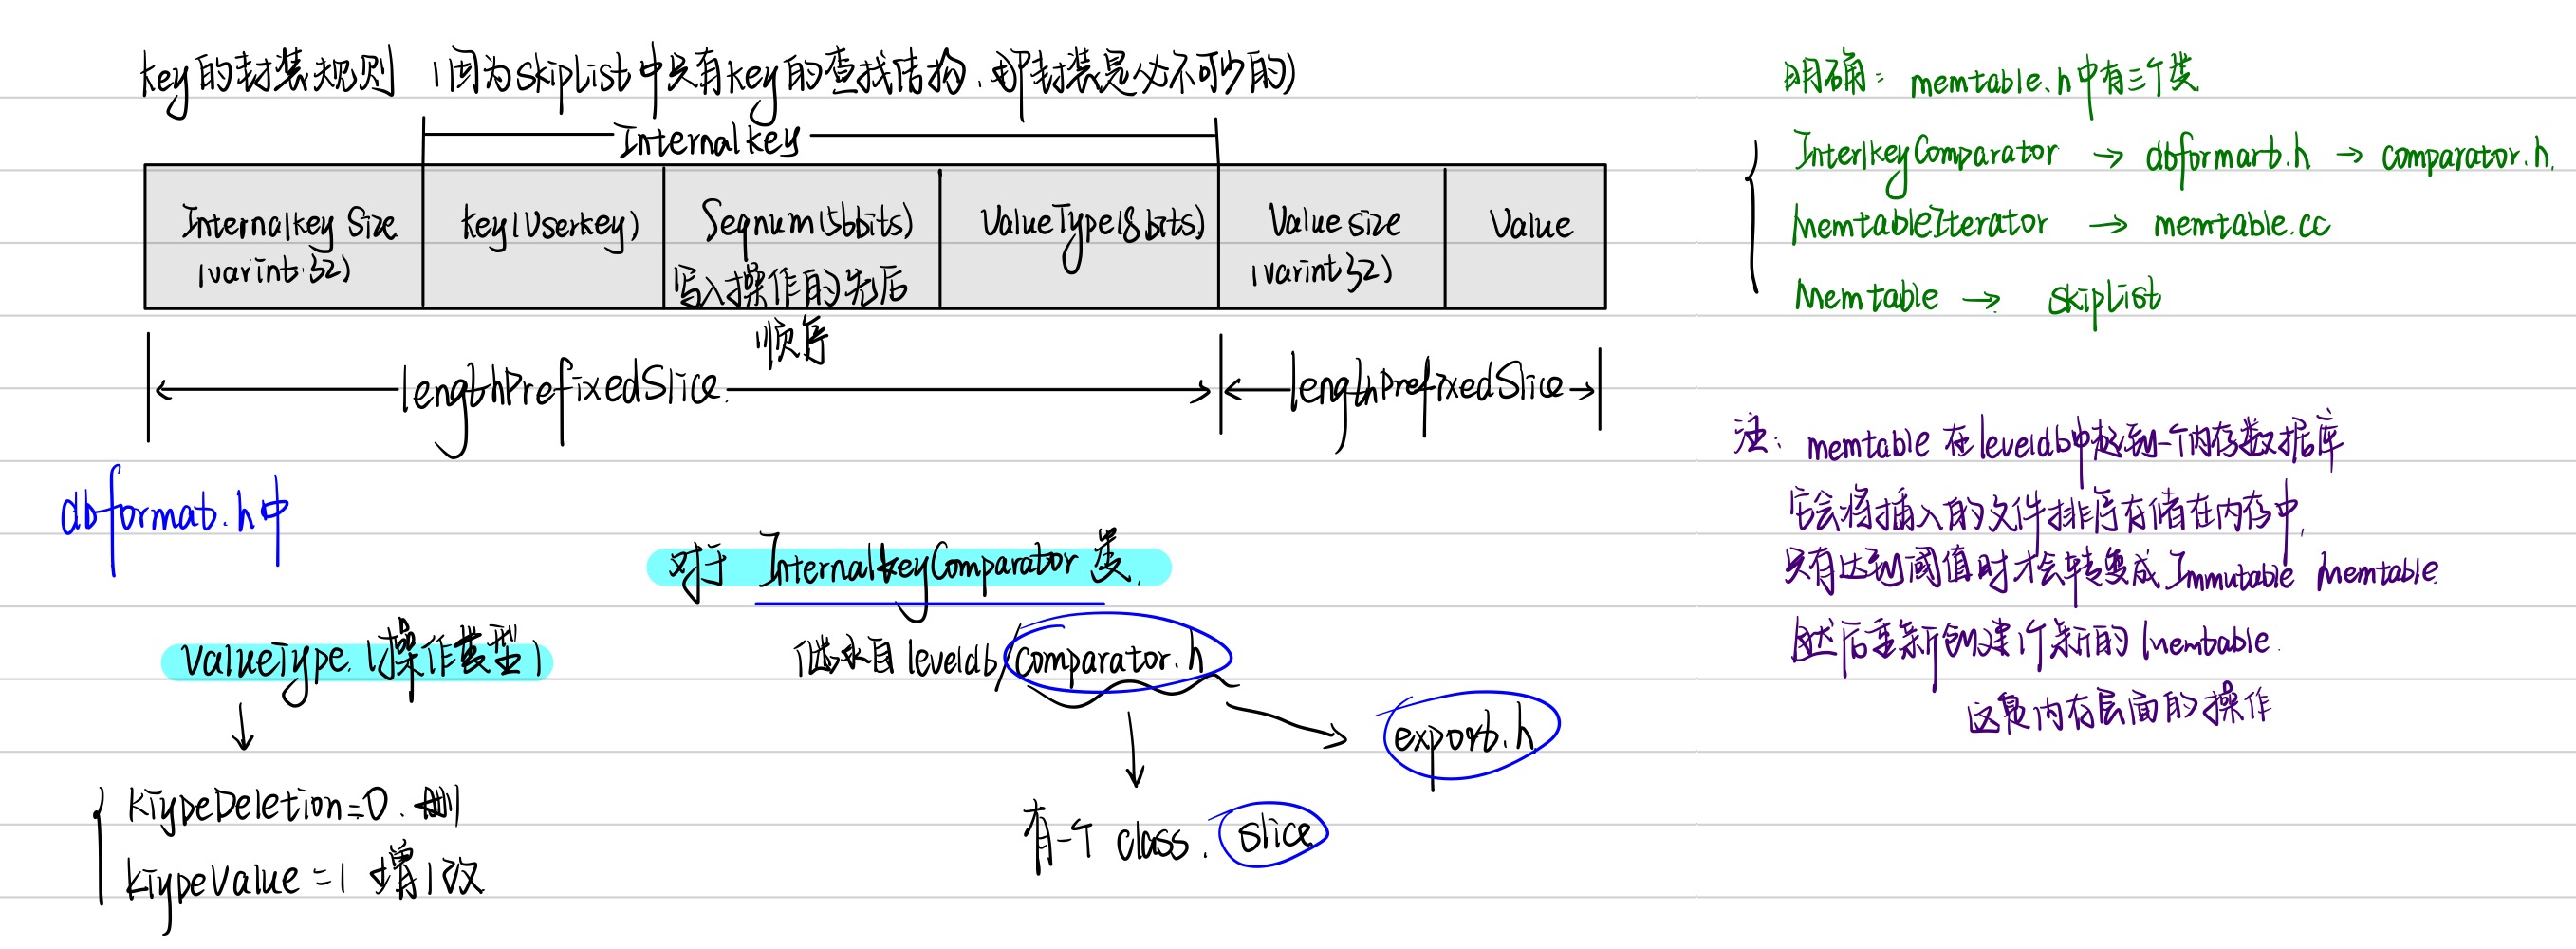 key的封装规则 (因为SkipList中只有key的查找结构,即封装是必不可少的)
Internalkey
Internalkey Size
(varint32)
key(Userkey)
Seqnum(56bits)
写入操作的先后
顺序
ValueType(8bits)
Value size
(varint32)
Value
lengthPrefixedSlice
lengthPrefixedSlice
dbformat.h中
ValueType (操作类型)
kTypeDeletion=0. 删
kTypeValue=1 增/改
对于 InternalkeyComparator 类.
继承自leveldb/comparator.h
export.h
有一个 class. slice
明确: memtable.h中有三个类
InterlkeyComparator → dbformart.h → comparator.h.
MemtableIterator → memtable.cc
Memtable → SkipList
注: memtable 在leveldb中起到一个内存数据库
它会将插入的文件排序存储在内存中,
只有达到阈值时才会转变成Immutable Memtable
然后重新创建1个新的Memtable.
这是内存层面的操作